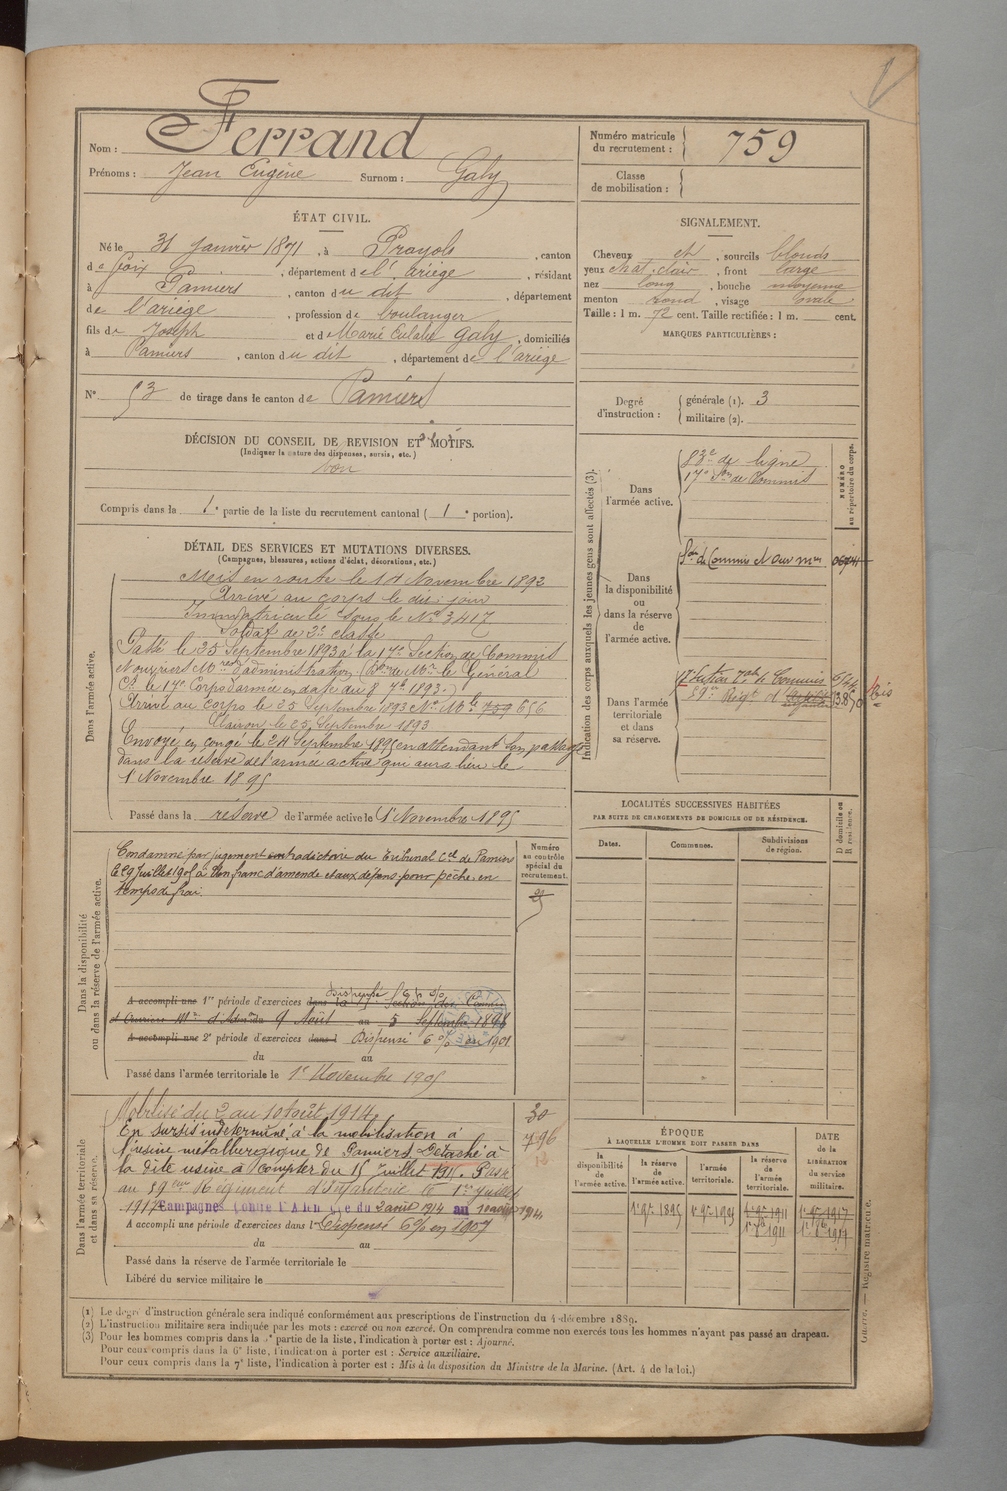 Nom : Ferrand
Prénoms : Jean Eugène Surnom : Galy
Numéro matricule du recrutement : 759
Classe de mobilisation :
ÉTAT CIVIL.
Né le 31 janvier 1871, à Prayols, canton
de Foix, département de l'ariège, résidant
à Pamiers, canton du dit, département
de l'ariège, profession de boulanger
fils de Joseph et de Marie Eulalie Galy, domiciliés
à Pamiers, canton du dit, département de l'ariège
N° 53 de tirage dans le canton de Pamiers
SIGNALEMENT.
Cheveux et, sourcils blonds
yeux chat. clair, front large
nez long, bouche moyenne
menton rond, visage ovale
Taille : 1 m. 72 cent. Taille rectifiée : 1 m. cent.
MARQUES PARTICULIÈRES :
Degré d'instruction : générale (1). 3
militaire (2).
DÉCISION DU CONSEIL DE REVISION ET MOTIFS.
(Indiquer la nature des dispenses, sursis, etc.)
bon
Compris dans la 1e partie de la liste du recrutement cantonal (1e portion).
DÉTAIL DES SERVICES ET MUTATIONS DIVERSES.
(Campagnes, blessures, actions d'éclat, décorations, etc.)
Dans l'armée active.
Mis en route le 14 Novembre 1892
Arrivé au corps le dit jour
Immatriculé sous le No 3417
Soldat de 2e classe
Passé le 25 Septembre 1893 à la 17e Section de Commis
et ouvriers Mres d'administration (Don de Mr le Général
Ct le 17e Corps d'armée en date du 8 7bre 1893.)
Arrivé au corps le 25 Septembre 1893 No Mle 759 656
Clairon le 25 Septembre 1893
Envoyé en congé le 24 Septembre 1895 en attendant son passage
dans la réserve de l'armée active qui aura lieu le
1er Novembre 1895
Passé dans la réserve de l'armée active le 1er Novembre 1895
Dans la disponibilité ou dans la réserve de l'armée active.
Condamné par jugement contradictoire du Tribunal Cel de Pamiers
le 29 Juillet 1905 à Un franc d'amende et aux dépens pour pêche en
temps de frai.
Numéro au contrôle spécial du recrutement.
Dispensé
A accompli une 1re période d'exercices dans la 17e Section de Commis
et Ouvriers Mres d'Adon du 9 Août au 5 Septembre 1898
A accompli une 2e période d'exercices dans l Dispensé 6 % en 1901
du au
Passé dans l'armée territoriale le 1er Novembre 1905
Dans l'armée territoriale et dans sa réserve.
Mobilisé du 2 au 10 Août 1914
En sursis indéterminé à la mobilisation à
l'usine métallurgique de Pamiers. Détaché à
la dite usine à compter du 15 juillet 1915. Passé
au 59eme Régiment d'Infanterie le 1er Juillet
1917 Campagnes contre l'Allemagne du 2 août 1914 au 10 août 1914
30
796
A accompli une période d'exercices dans l Dispensé 6% en 1907
du au
Passé dans la réserve de l'armée territoriale le
Libéré du service militaire le
Indication des corps auxquels les jeunes gens sont affectés (3).
NUMÉRO au répertoire du corps.
Dans l'armée active.
83e de ligne
17e Son de Commis
Dans la disponibilité ou dans la réserve de l'armée active.
Son de Commis et Ouv mres
Dans l'armée territoriale et dans sa réserve.
17e Section Tale de Commis
59e Régt d'Infanterie
bis
LOCALITÉS SUCCESSIVES HABITÉES
PAR SUITE DE CHANGEMENTS DE DOMICILE OU DE RÉSIDENCE.
Dates. Communes. Subdivisions de région. D domicile ou R résidence.
ÉPOQUE
À LAQUELLE L'HOMME DOIT PASSER DANS
la disponibilité de l'armée active.
la réserve de l'armée active.
l'armée territoriale.
la réserve de l'armée territoriale.
DATE de la LIBÉRATION du service militaire.
1er 9bre 1895 1er 9bre 1905 1er 9bre 1911 1er 9bre 1917
(1) Le degré d'instruction générale sera indiqué conformément aux prescriptions de l'instruction du 4 décembre 1889.
(2) L'instruction militaire sera indiquée par les mots : exercé ou non exercé. On comprendra comme non exercés tous les hommes n'ayant pas passé au drapeau.
(3) Pour les hommes compris dans la 5e partie de la liste, l'indication à porter est : Ajourné.
Pour ceux compris dans la 6e liste, l'indication à porter est : Service auxiliaire.
Pour ceux compris dans la 7e liste, l'indication à porter est : Mis à la disposition du Ministre de la Marine. (Art. 4 de la loi.)
Guerre. — Registre matricule.